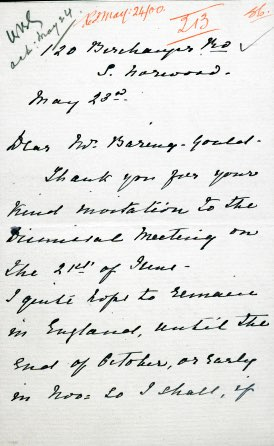 Rd May 24/00.
213
86.
ack. May 24
120 Birchanger Rd
S. Norwood.
May 23rd.
Dear Mr. Baring-Gould.
Thank you for your
kind invitation to the
Dismissal Meeting on
the 21st of June.
I quite hope to remain
in England, until the
end of October, or early
in Nov: so I shall, if